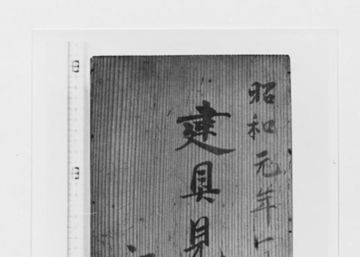 昭和元年
建具見